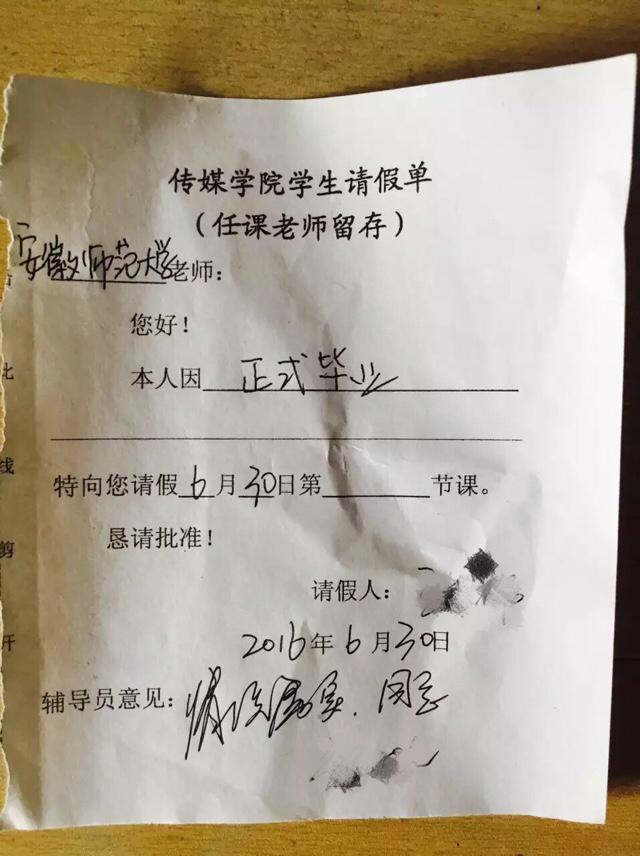 传媒学院学生请假单
（任课老师留存）
安徽师范大学老师：
您好！
本人因正式毕业
特向您请假6月30日第 节课。
恳请批准！
请假人：
2016年6月30日
辅导员意见：情况属实，同意
此
线
剪
开